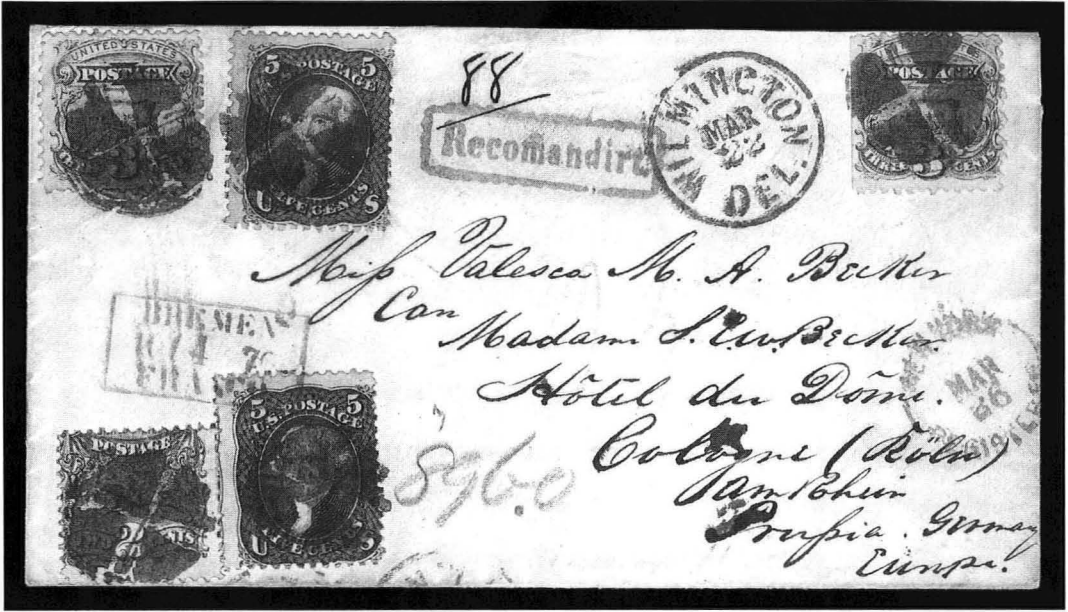 UNITED STATES
POSTAGE
5 5
U.S. POSTAGE
U FIVE CENTS S
88
Recomandirt
WILMINGTON
MAR
22
DEL.
POSTAGE
THREE 3 CENTS
Miss Valesca M. A. Becker
Care
Madame S. E. W. Becker.
Hôtel du Dôme.
Cologne (Köln)
am Rhein
Prussia. Germany
Europe.
BREMEN
70
FRANCO
NEW YORK
MAR
26
REGISTERED
5 5
U.S. POSTAGE
U FIVE CENTS S
POSTAGE
2
8960